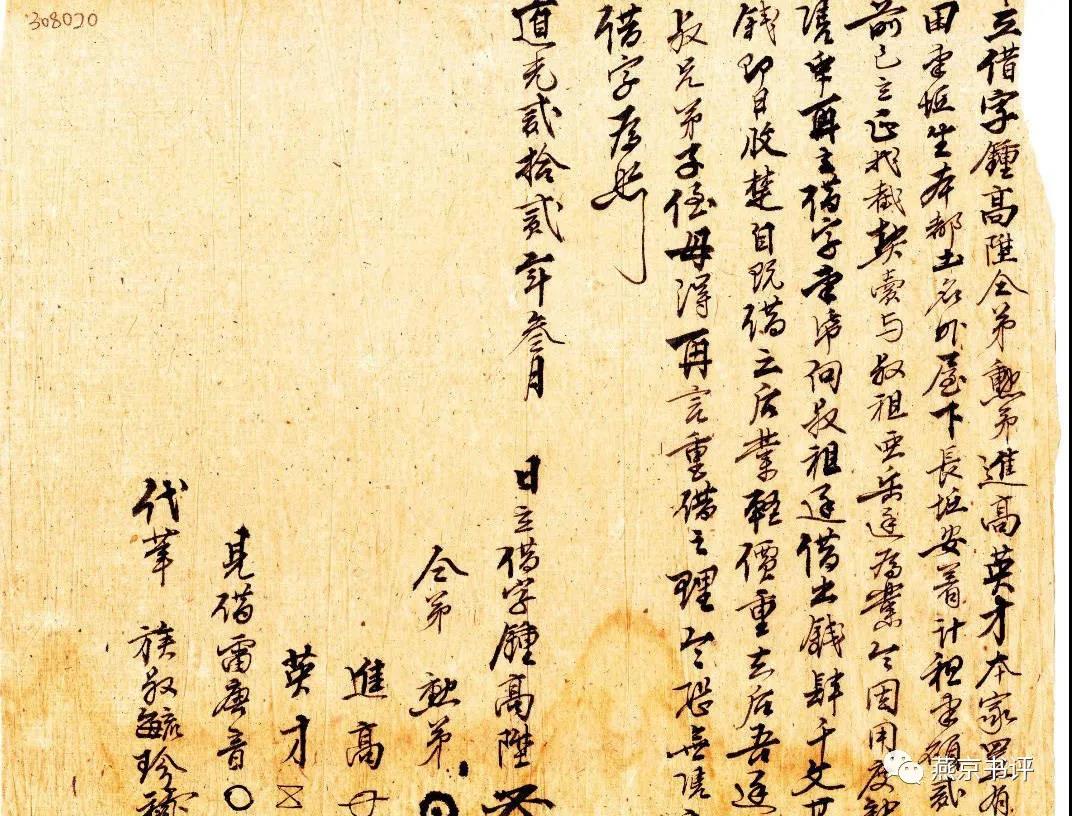 308020
立借字鍾高陞仝弟勳弟進高英才本家置有
田壹坵坐本都土名外屋下長坵安着計租壹碩貳
前已立正找截契賣与叔祖亞岳逞為業今因用度缺
憑中再立借字壹帋向叔祖逞借出錢肆千文其
錢即日收楚自既借之后業輕價重去后吾逞
叔兄弟子侄毋得再言重借之理今恐無憑立
借字存照
道光貳拾貳年叁月 日立借字鍾高陞
仝弟 勳弟
進高
英才
見借雷庚音
代筆 族叔毓珍
燕京书评